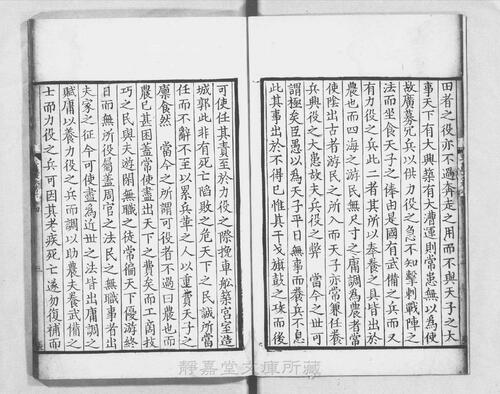 田者之役亦不過奔走之用而不與天子之大
事天下有大興築有大漕運則常患無以為使
故廣募冗兵以供力役之急不知擊刺戰陣之
法而坐食天子之俸由是國有武備之兵而又
有力役之兵此二者其所以奉養之具皆出於
農也而四海之游民無尺寸之庸調為農者常
使陰出古者游民之所入而天子亦常兼任養
兵興役之大患故夫兵役之弊當今之世可
謂極矣臣愚以為天子平日無事而養兵不息
此其事出於不得已惟其干戈旗鼓之攻而後
可使任其責至於力役之際挽車船築宮室造
城郭此非有死亡陷敗之危天下之民誠所當
任而不辭不至以累兵革之人以重費天子之
廩食然當今之所謂可役者不過曰農也而
農已甚困蓋常使盡出天下之費矣而工商技
巧之民與夫游閑無職之徒常徧天下優游終
日而無所役屬蓋周官之法民之無職事者出
夫家之征今可使盡為近世之法皆出庸調之
賦庸以養力役之兵而調以助農夫養武備之
士而力役之兵可因其老疾死亡遂勿復補而
靜嘉堂文庫所藏